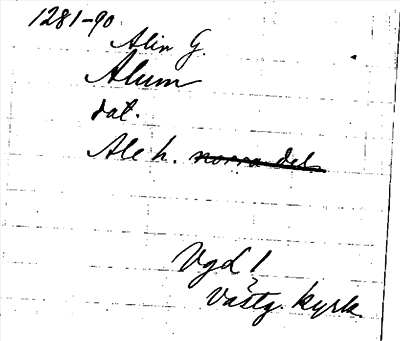 1281-90
Alin G.
Alum
dat.
Ale h. norra del.
Vgd 1
Västg. kyrk.